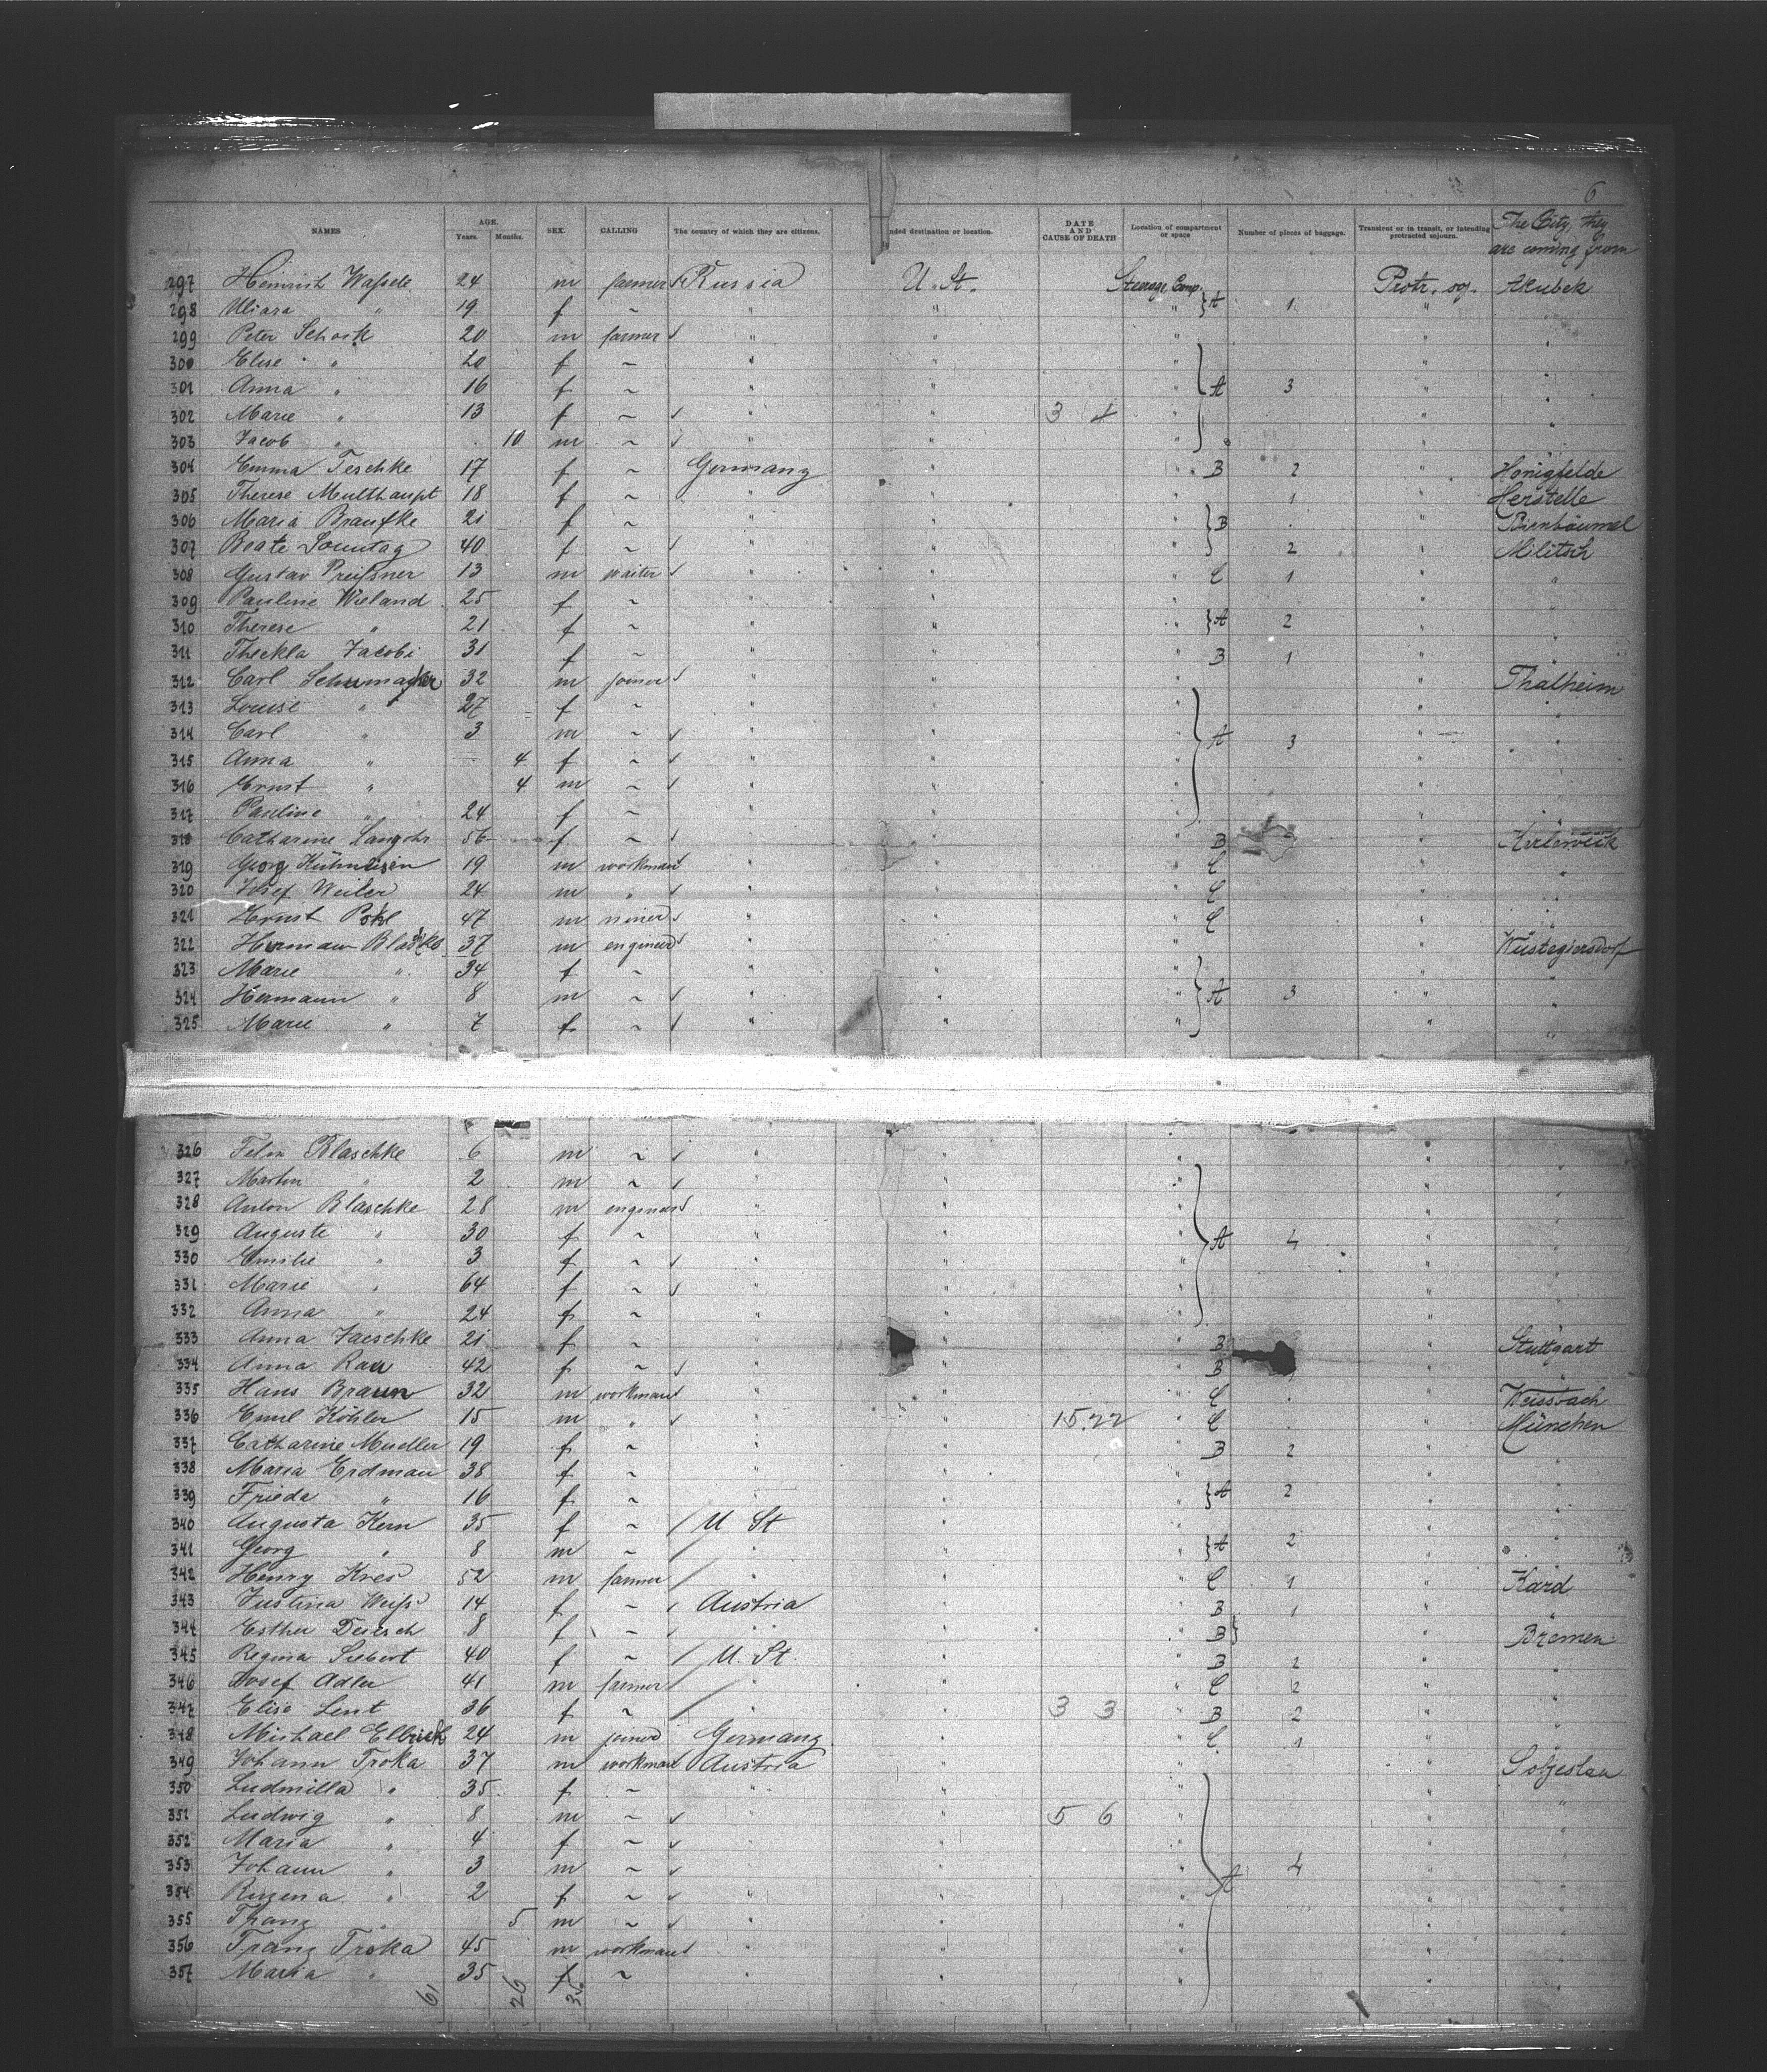 6
NAMES AGE. Years. Months. SEX. CALLING The country of which they are citizens. nded destination or location. DATE AND CAUSE OF DEATH Location of compartment or space Number of pieces of baggage. Transient or in transit, or intending protracted sojourn. The City, they are coming from
297 Heinrich 24 m farmer Russia U. St. Steerage Comp. Protr. sog. Akubek
298 " 19 f ~ " " " A 1 " "
299 Peter Schock 20 m farmer " " " " "
300 Elise " 20 f ~ " " " " "
301 Anna " 16 f ~ " " " A 3 " "
302 Marie " 13 f ~ " " 3 " " "
303 Jacob " 10 m ~ " " " " "
304 Emma Teschke 17 f ~ Germany " " B 2 " Honigfelde
305 Therese Multhaupt 18 f ~ " " " 1 " Herstelle
306 Maria 21 f ~ " " " B "
307 Beate Sonntag 40 f ~ " " " 2 " Militsch
308 Gustav Preißner 13 m waiter " " " C 1 " "
309 Pauline Wieland 25 f ~ " " " " "
310 Therese " 21 f ~ " " " A 2 " "
311 Theckla Jacobi 31 f ~ " " " B 1 " "
312 Carl Schumacher 32 m joiner " " " " Thalheim
313 Louise " 27 f ~ " " " " "
314 Carl " 3 m ~ " " " A 3 " "
315 Anna " 4 f ~ " " " " "
316 Ernst " 4 m ~ " " " " "
317 Pauline " 24 f ~ " " " " "
318 Catharine Langohr 56 f ~ " " " B "
319 Georg 19 m workman " " " C " "
320 Josef Weiler 24 m " " " " C " "
321 Ernst Pohl 47 m miner " " " C " "
322 Hermann Blaschke 37 m engineer " " " " Wüstegiersdorf
323 Marie " 34 f ~ " " " " "
324 Hermann " 8 m ~ " " " A 3 " "
325 Marie " 7 f ~ " " " " "
326 Felix Blaschke 6 m ~ " " " " "
327 Martin " 2 m ~ " " " " "
328 Anton Blaschke 28 m engineer " " " " "
329 Auguste " 30 f ~ " " " A 4 " "
330 Emilie " 3 f ~ " " " " "
331 Marie " 64 f ~ " " " " "
332 Anna " 24 f ~ " " " " "
333 Anna Jaeschke 21 f ~ " " " B " Stuttgart
334 Anna Rau 42 f ~ " " " B " "
335 Hans Braun 32 m workman " " " C " Weissbach
336 Emil Köhler 15 m " " " 15.22 " C " München
337 Catharine Mueller 19 f ~ " " " B 2 " "
338 Maria Erdman 38 f ~ " " " " "
339 Frieda " 16 f ~ " " " A 2 " "
340 Augusta Kern 35 f ~ U St " " " "
341 Georg " 8 m ~ " " " A 2 " "
342 Henry Kres 52 m farmer " " " C 1 " Kard
343 Justina Weiß 14 f ~ Austria " " B 1 " "
344 Esther 8 f ~ " " " B " Bremen
345 Regina Siebert 40 f ~ U. St. " " B 2 " "
346 Josef Adler 41 m farmer " " " C 2 " "
347 Elise Lent 36 f ~ " " 3 3 " B 2 " "
348 Michael Elbrich 24 m joiner Germany " " C 1 " "
349 Johann Troka 37 m workman Austria " " " Sobjeslau
350 Ludmilla " 35 f ~ " " " " "
351 Ludwig " 8 m ~ " " 5 6 " " "
352 Maria " 4 f ~ " " " " "
353 Johann " 3 m ~ " " " A 4 " "
354 Ruzena " 2 f ~ " " " " "
355 Franz " 5 m ~ " " " " "
356 Franz Troka 45 m workman " " " " "
357 Maria " 35 f ~ " " " " "
61 26 35